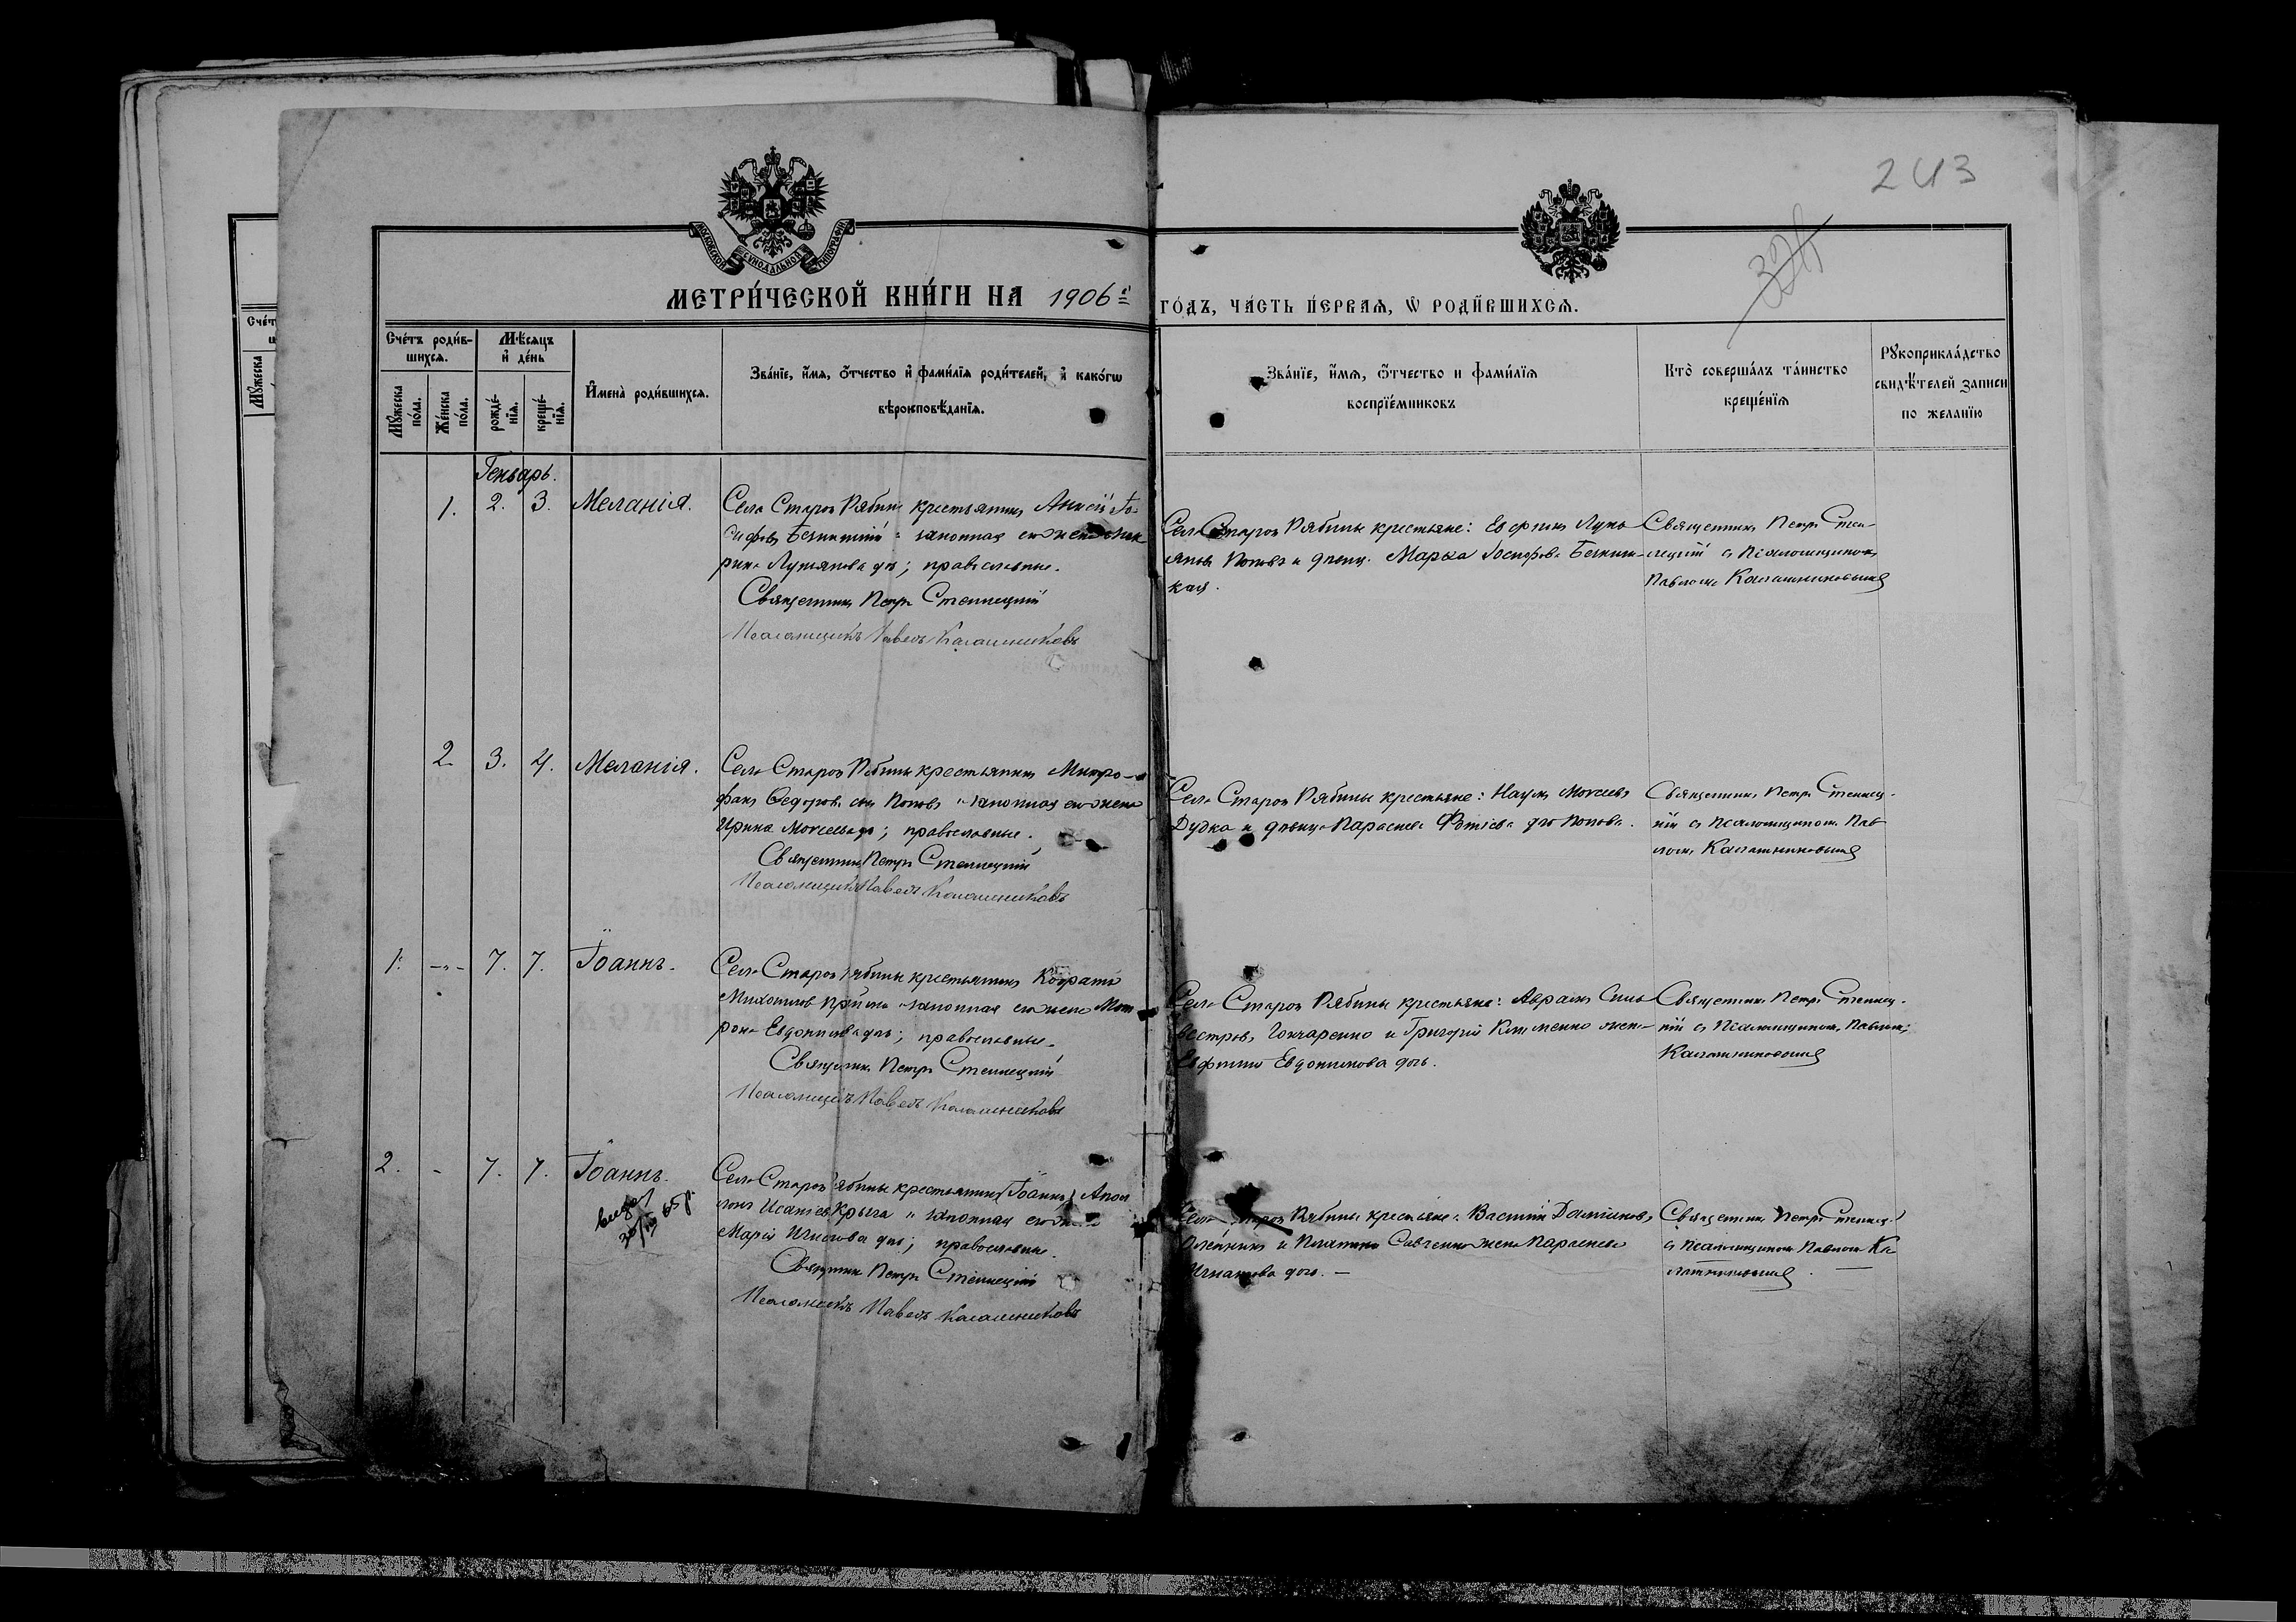 243
МОСКОВСКОЙ СѴНОДАЛЬНОЙ ТИПОГРАФІИ
МЕТРИ́ЧЕСКОЙ КНИ́ГИ НА 1906 й
ГО́ДЪ, ЧА́СТЬ ПЕ́РВАЯ, Ѡ РОДИ́ВШИХСЯ.
Сче́тъ роди́в-
шихся.
Мѣсяцъ
и де́нь
Мужеска
по́ла.
Же́нска
по́ла.
рожде́-
нїя.
креще́-
нїя.
Имена̀ роди́вшихся.
Зва́нїе, и́мя, о́тчество и фами́лїя роди́телей, и како́гѡ
вѣроисповѣ́данїя.
Зва́нїе, и́мя, о́тчество и фами́лїя
воспрїе́мниковъ
Кто̀ соверша́лъ та́инство
креще́нїя
Рукоприкла́дство
свидѣ́телей записи
по желанїю
Генварь.
1. 2. 3. Меланія.
Села Старой Рябины крестьянинъ
законная его жена
рина Лукьянова дч; православные.
Священникъ Петръ Стеллецкій
Псаломщикъ Павелъ Калашниковъ
Села Старой Рябины крестьяне: Лукь
яновъ Поповъ и дѣвица Марѳа Іосифова
кая.
Священникъ Петръ Стел-
лецкій съ псаломщикомъ
Павломъ Калашниковымъ
2. 3. 4. Меланія.
Села Старой Рябины крестьянинъ Митро-
фанъ Ѳедоровъ сынъ Поповъ и законная его жена
Ирина Моисеева дч; православные.
Священникъ Петръ Стеллецкій
Псаломщикъ Павелъ Калашниковъ
Села Старой Рябины крестьяне: Наумъ Моисеевъ
Дудка и дѣвица Параскева Фотіева дчь Попова.
Священникъ Петръ Стеллец-
кій съ псаломщикомъ Пав
ломъ Калашниковымъ
1. -"- 7. 7. Іоаннъ.
Села Старой Рябины крестьянинъ Кодратъ
Михаиловъ и законная его жена Мат
рона Евдокимова дчь; православные.
Священникъ Петръ Стеллецкій
Псаломщикъ Павелъ Калашниковъ
Села Старой Рябины крестьяне: Авраамъ Силь
вестровъ Гончаренко и Григорія Клименко жена
Евфимія Евдокимова дочь.
Священникъ Петръ Стеллец-
кій съ псаломщикомъ Павломъ
Калашниковымъ
2. - 7. 7. Іоаннъ.
Села Старой Рябины крестьянинъ (Іоаннъ) Апол
лонъ Исаіевъ Крыга и законная его жена
Марія дчь; православные.
Священникъ Петръ Стеллецкій
Псаломщикъ Павелъ Калашниковъ
Села Старой Рябины крестьяне: Василій Даміановъ
Олейникъ и Платона Савченко жена Параскева
Игнатова дочь. —
Священникъ Петръ Стеллецкій
съ псаломщикомъ Павломъ Ка
лашниковымъ. —